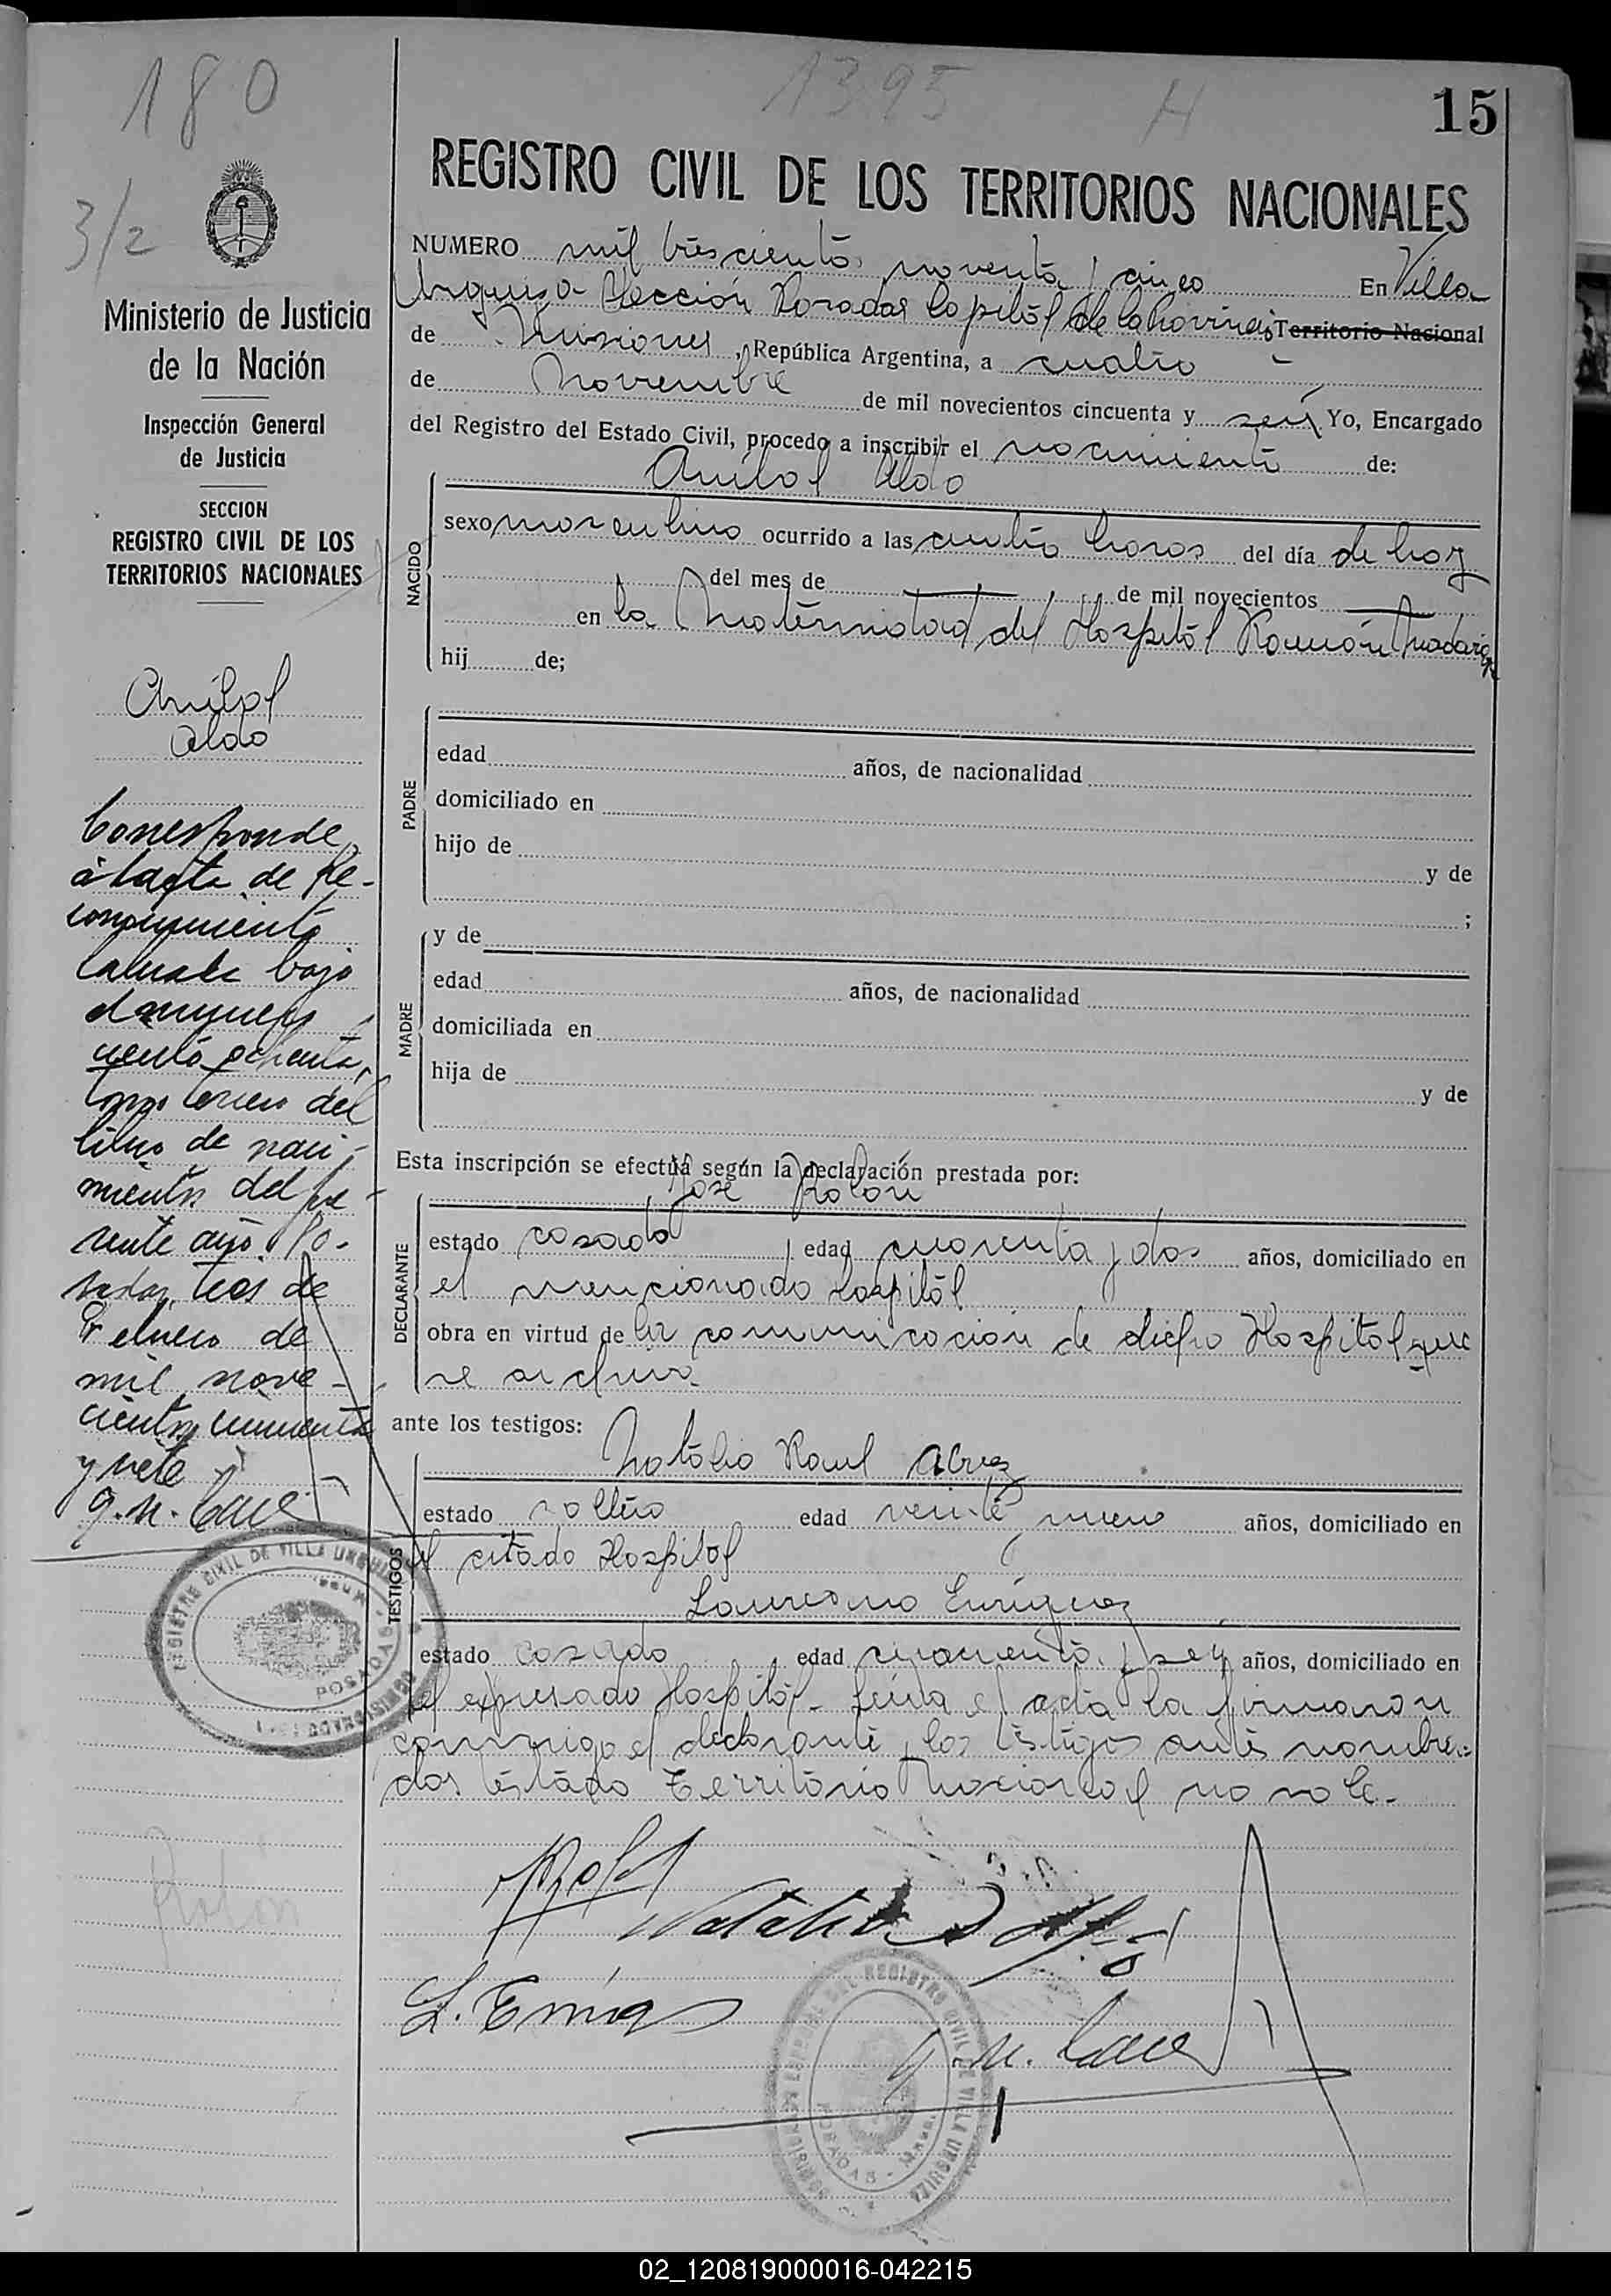 180
1395
H
15
3/2
REGISTRO CIVIL DE LOS TERRITORIOS NACIONALES
Ministerio de Justicia
de la Nación
Inspección General
de Justicia
SECCION
REGISTRO CIVIL DE LOS
TERRITORIOS NACIONALES
Aníbal
Aldo
Corresponde
a l acta de Re-
conocimiento
labrada bajo
el número
ciento ochenta,
tomo tercero del
libro de naci-
mientos del pre-
sente año. Po-
sadas, tres de
Febrero de
mil nove-
cientos cincuenta
y siete
REGISTRO CIVIL DE VILLA URQUIZA
POSADAS
MISIONES
NUMERO mil trescientos noventa y cinco En Villa
Urquiza Sección Posadas Capital de la Provincia Territorio Nacional
de Misiones, República Argentina, a cuatro
de Noviembre de mil novecientos cincuenta y seis Yo, Encargado
del Registro del Estado Civil, procedo a inscribir el nacimiento de:
Aníbal Aldo
NACIDO
sexo masculino ocurrido a las cuatro horas del día de hoy
del mes de de mil novecientos
en la Maternidad del Hospital Ramón Madariaga
hij de;
PADRE
edad años, de nacionalidad
domiciliado en
hijo de y de
;
MADRE
y de
edad años, de nacionalidad
domiciliada en
hija de y de
Esta inscripción se efectúa según la declaración prestada por:
José Rolón
DECLARANTE
estado casado edad cuarenta y dos años, domiciliado en
el mencionado Hospital
obra en virtud de la comunicación de dicho Hospital que
se archiva
ante los testigos:
Natalio Raul
TESTIGOS
estado soltero edad veinte y nueve años, domiciliado en
el citado Hospital
Laureano Enriquez
estado casado edad cincuenta y seis años, domiciliado en
el expresado Hospital. Leída el acta la firmaron
conmigo el declarante y los testigos antes nombra-
dos testado Territorio Nacional no vale.
Rolón
Natalio
REGISTRO CIVIL DE VILLA URQUIZA
POSADAS
MISIONES
02_120819000016-042215